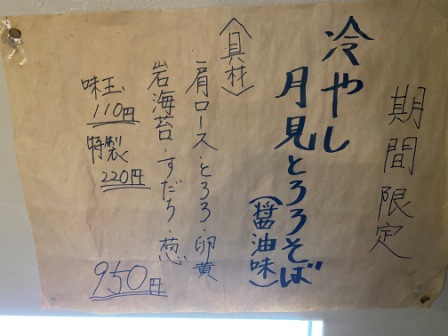 期間限定
冷やし
月見とろろそば
(醤油味)
〈具材〉
・肩ロース・とろろ・卵黄
岩海苔・すだち・葱
味玉
110円
特製
220円
950円